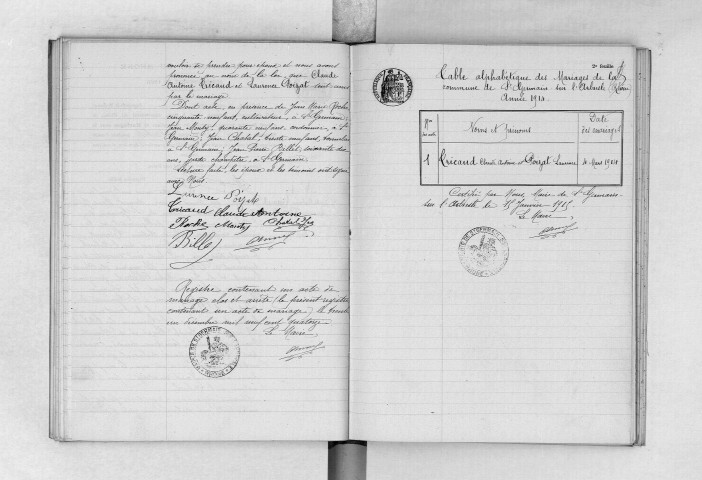 vouloir se prendre pour époux et nous avons
prononcé au nom de la loi, que Claude
Antoine Tricaud et Laurence Poizat sont unis
par le mariage.
Dont acte en présence de Jean Marie Roche
cinquante neuf ans, cultivateur, à St Germain;
Jean Manty, quarante neuf ans, cordonnier, à St
Germain; Jean Chatel, trente neuf ans,
à St Germain; Jean Pierre Billet, soixante dix
ans, garde champêtre, à St Germain.
Lecture faite, les époux et les témoins ont signé
avec Nous.
Laurence Poizat
Tricaud Claude Antoine
Roche Manty Chatel
Billet
Registre contenant un acte de
mariage clos et arrêté (le présent registre
contenant un acte de mariage) le trente
un décembre mil neuf cent quatorze
Le Maire
2e feuille
Table alphabétique des Mariages de la
commune de St Germain sur l'Arbresle (Rhône)
Année 1914.
Nos
des actes
Noms et Prénoms
Date
des mariages
1 Tricaud Claude Antoine et Poizat Laurence 14 Mars 1914
Certifié par Nous, Maire de St Germain
sur l'Arbresle le 15 Janvier 1915
Le Maire